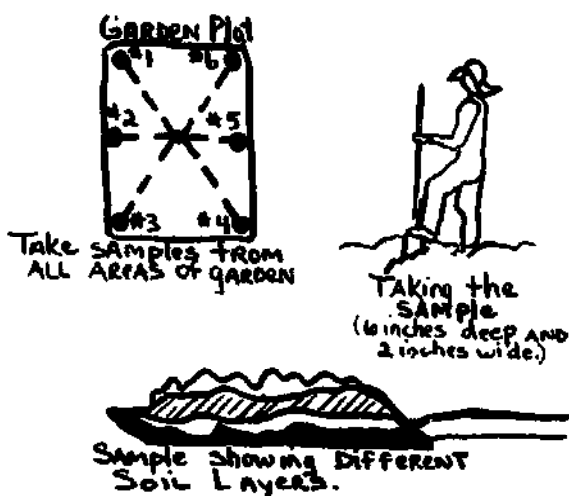 GARDEN Plot
#1 #6
#2 #5
#3 #4
Take SAMPLES FROM
ALL AREAS OF GARDEN
TAKING the
SAMPLE
(6 inches deep AND
2 inches wide.)
SAMPLE Showing DIFFERENT
Soil LAYERS.